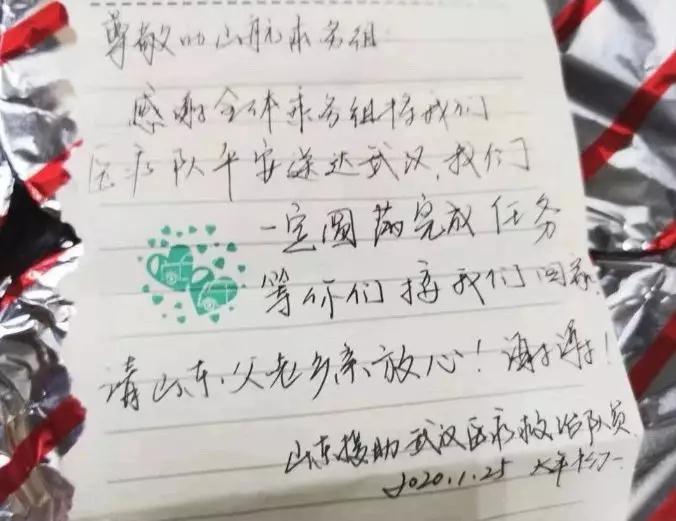 尊敬的山航乘务组:
感谢全体乘务组将我们
医疗队平安送达武汉,我们
一定圆满完成任务
等你们接我们回家.
请山东父老乡亲放心!谢谢!
山东援助武汉医疗救治队员
2020.1.25 大年初一